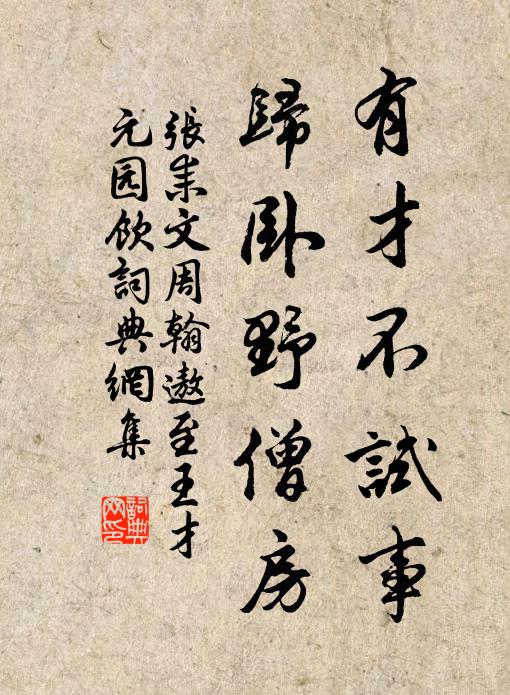 有才不試事
歸卧野僧房
張耒文周翰遨至王才
元园飲詞典網集
詞典
网印